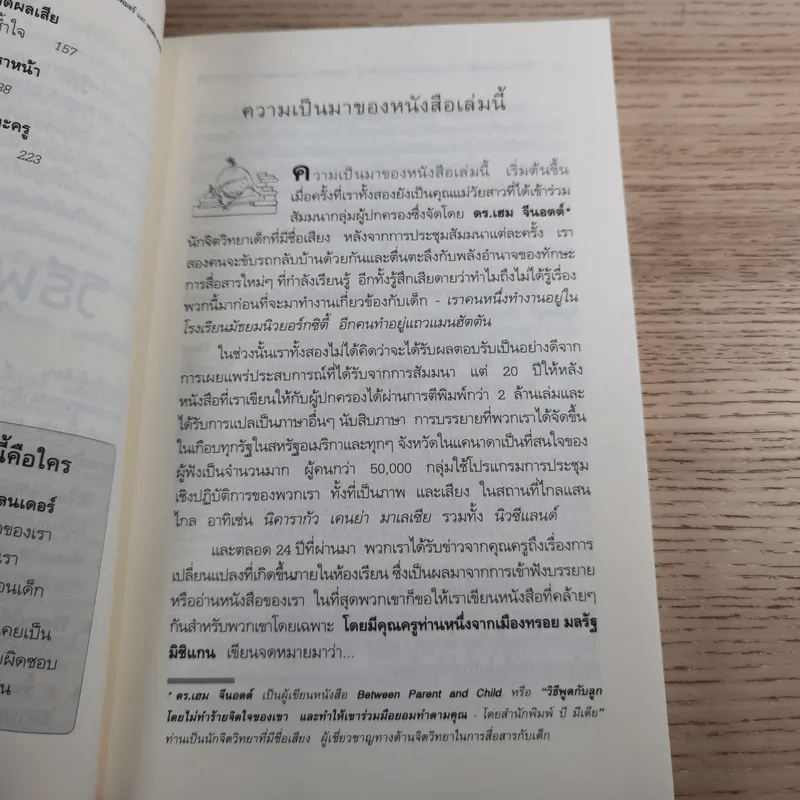 157
223
ความเป็นมาของหนังสือเล่มนี้
ความเป็นมาของหนังสือเล่มนี้ เริ่มต้นขึ้น
เมื่อครั้งที่เราทั้งสองยังเป็นคุณแม่วัยสาวที่ได้เข้าร่วม
สัมมนากลุ่มผู้ปกครองซึ่งจัดโดย ดร.เฮม จีนอตต์*
นักจิตวิทยาเด็กที่มีชื่อเสียง หลังจากการประชุมสัมมนาแต่ละครั้ง เรา
สองคนจะขับรถกลับบ้านด้วยกันและตื่นตะลึงกับพลังอำนาจของทักษะ
การสื่อสารใหม่ๆ ที่กำลังเรียนรู้ อีกทั้งรู้สึกเสียดายว่าทำไมถึงไม่ได้รู้เรื่อง
พวกนี้มาก่อนที่จะมาทำงานเกี่ยวข้องกับเด็ก - เราคนหนึ่งทำงานอยู่ใน
โรงเรียนมัธยมนิวยอร์กซิตี้ อีกคนทำอยู่แถวแมนฮัตตัน
ในช่วงนั้นเราทั้งสองไม่ได้คิดว่าจะได้รับผลตอบรับเป็นอย่างดีจาก
การเผยแพร่ประสบการณ์ที่ได้รับจากการสัมมนา แต่ 20 ปีให้หลัง
หนังสือที่เราเขียนให้กับผู้ปกครองได้ผ่านการตีพิมพ์กว่า 2 ล้านเล่มและ
ได้รับการแปลเป็นภาษาอื่นๆ นับสิบภาษา การบรรยายที่พวกเราได้จัดขึ้น
ในเกือบทุกรัฐในสหรัฐอเมริกาและทุกๆ จังหวัดในแคนาดาเป็นที่สนใจของ
ผู้ฟังเป็นจำนวนมาก ผู้คนกว่า 50,000 กลุ่มใช้โปรแกรมการประชุม
เชิงปฏิบัติการของพวกเรา ทั้งที่เป็นภาพ และเสียง ในสถานที่ไกลแสน
ไกล อาทิเช่น นิคารากัว เคนย่า มาเลเซีย รวมทั้ง นิวซีแลนด์
และตลอด 24 ปีที่ผ่านมา พวกเราได้รับข่าวจากคุณครูถึงเรื่องการ
เปลี่ยนแปลงที่เกิดขึ้นภายในห้องเรียน ซึ่งเป็นผลมาจากการเข้าฟังบรรยาย
หรืออ่านหนังสือของเรา ในที่สุดพวกเขาก็ขอให้เราเขียนหนังสือที่คล้ายๆ
กันสำหรับพวกเขาโดยเฉพาะ โดยมีคุณครูท่านหนึ่งจากเมืองทรอย มลรัฐ
มิชิแกน เขียนจดหมายมาว่า...
* ดร.เฮม จีนอตต์ เป็นผู้เขียนหนังสือ Between Parent and Child หรือ "วิธีพูดกับลูก
โดยไม่ทำร้ายจิตใจของเขา และทำให้เขาร่วมมือยอมทำตามคุณ - โดยสำนักพิมพ์ บี มีเดีย"
ท่านเป็นนักจิตวิทยาที่มีชื่อเสียง ผู้เชี่ยวชาญทางด้านจิตวิทยาในการสื่อสารกับเด็ก